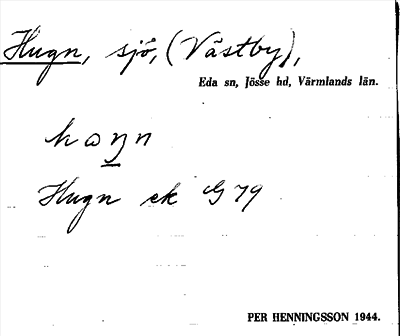 Hugn, sjö, (Västby),
Eda sn, Jösse hd, Värmlands län.
Hugn ek G 79
PER HENNINGSSON 1944.